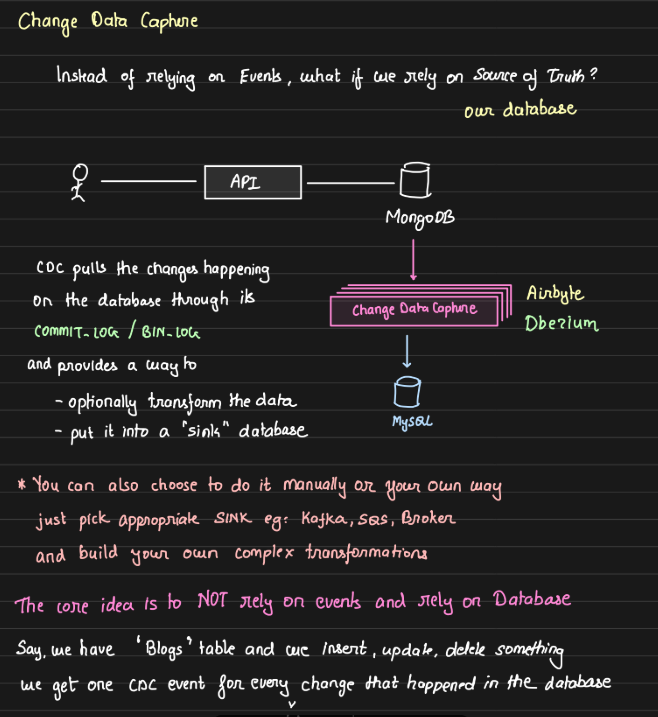 Change Data Capture
Instead of relying on Events, what if we rely on Source of Truth?
our database
API
MongoDB
CDC pulls the changes happening
on the database through its
COMMIT-LOG / BIN-LOG
and provides a way to
- optionally transform the data
- put it into a "sink" database
Change Data Capture
Airbyte
Dbezium
MySQL
* You can also choose to do it manually or your own way
just pick appropriate SINK eg: Kafka, SQS, Broker
and build your own complex transformations
The core idea is to NOT rely on events and rely on Database
Say, we have 'Blogs' table and we insert, update, delete something
we get one CDC event for every change that happened in the database